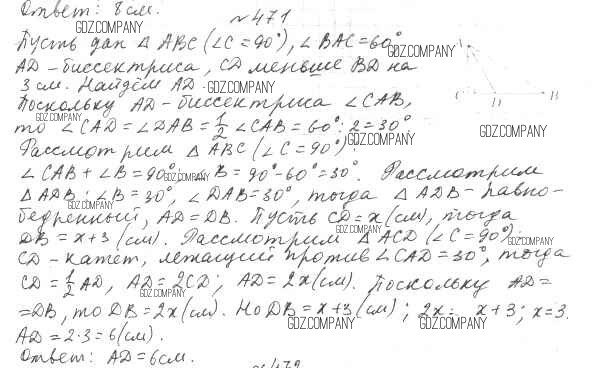 Ответ: 8 см.
GDZ.COMPANY
№ 471
Пусть дан △ ABC (∠C = 90°), ∠BAC = 60°
GDZ.COMPANY
AD - биссектриса, CD меньше BD на
3 см. Найдём AD.
GDZ.COMPANY
Поскольку AD - биссектриса ∠CAB,
GDZ.COMPANY
то ∠CAD = ∠DAB = 1/2 ∠CAB = 60° : 2 = 30°
GDZ.COMPANY
GDZ.COMPANY
Рассмотрим △ ABC (∠C = 90°):
∠CAB + ∠B = 90°; B = 90° - 60° = 30°. Рассмотрим
GDZ.COMPANY
△ ADB: ∠B = 30°, ∠DAB = 30°, тогда △ ADB - равно-
GDZ.COMPANY
бедренный, AD = DB. Пусть CD = x (см), тогда
GDZ.COMPANY
DB = x + 3 (см). Рассмотрим △ ACD (∠C = 90°)
GDZ.COMPANY
CD - катет, лежащий против ∠CAD = 30°, тогда
CD = 1/2 AD, AD = 2CD; AD = 2x (см). Поскольку AD =
GDZ.COMPANY
= DB, то DB = 2x (см). Но DB = x + 3 (см); 2x = x + 3; x = 3.
GDZ.COMPANY
GDZ.COMPANY
AD = 2·3 = 6 (см).
Ответ: AD = 6 см.
№ 472
C
D
B